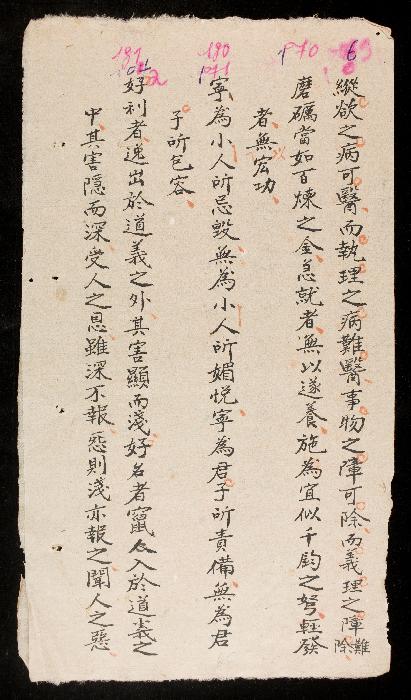 縱欲之病可醫而執理之病難醫事物之障可除而義理之障難除
磨礪當如百煉之金急就者無以遂養施為宜似千鈞之弩輕發
者無宏功
寧為小人所忌毀無為小人所媚悅寧為君子所責備無為君
子所包容
好利者逸出於道義之外其害顯而淺好名者竄入於道義之
中其害隱而深受人之恩雖深不報惡則淺亦報之聞人之惡